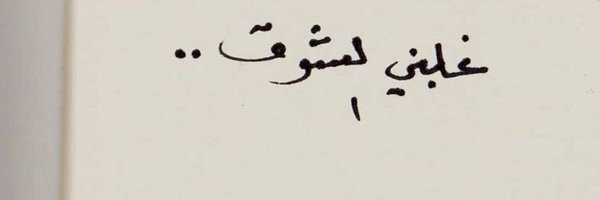 غلبني الشوق ..